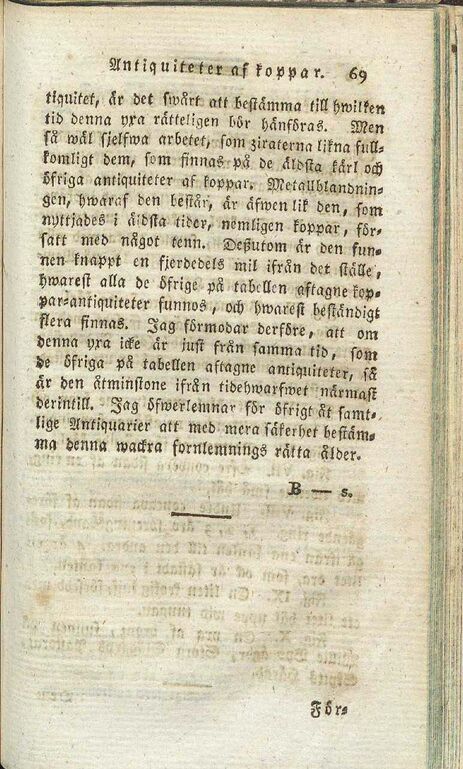 Antiquiteter af koppar. 69
tiquitet, är det swårt att bestämma till hwilken
tid denna yxa rätteligen bör hänföras. Men
så wäl sjelfwa arbetet, som ziraterna likna full-
komligt dem, som finnas på de äldsta kärl och
öfriga antiquiteter af koppar. Metallblandnin-
gen, hwaraf den består, är äfwen lik den, som
nyttjades i äldsta tider, nemligen koppar, för-
satt med något tenn. Deßutom är den fun-
nen knappt en fjerdedels mil ifrån det ställe,
hwarest alla de öfrige på tabellen aftagne kop-
par-antiquiteter funnos, och hwarest beständigt
flera finnas. Jag förmodar derföre, att om
denna yxa icke är just från samma tid, som
de öfriga på tabellen aftagne antiquiteter, så
är den åtminstone ifrån tidehwarfwet närmast
derintill. Jag öfwerlemnar för öfrigt åt samt-
lige Antiquarier att med mera säkerhet bestäm-
ma denna wackra fornlemnings rätta ålder.
B — s.
För-